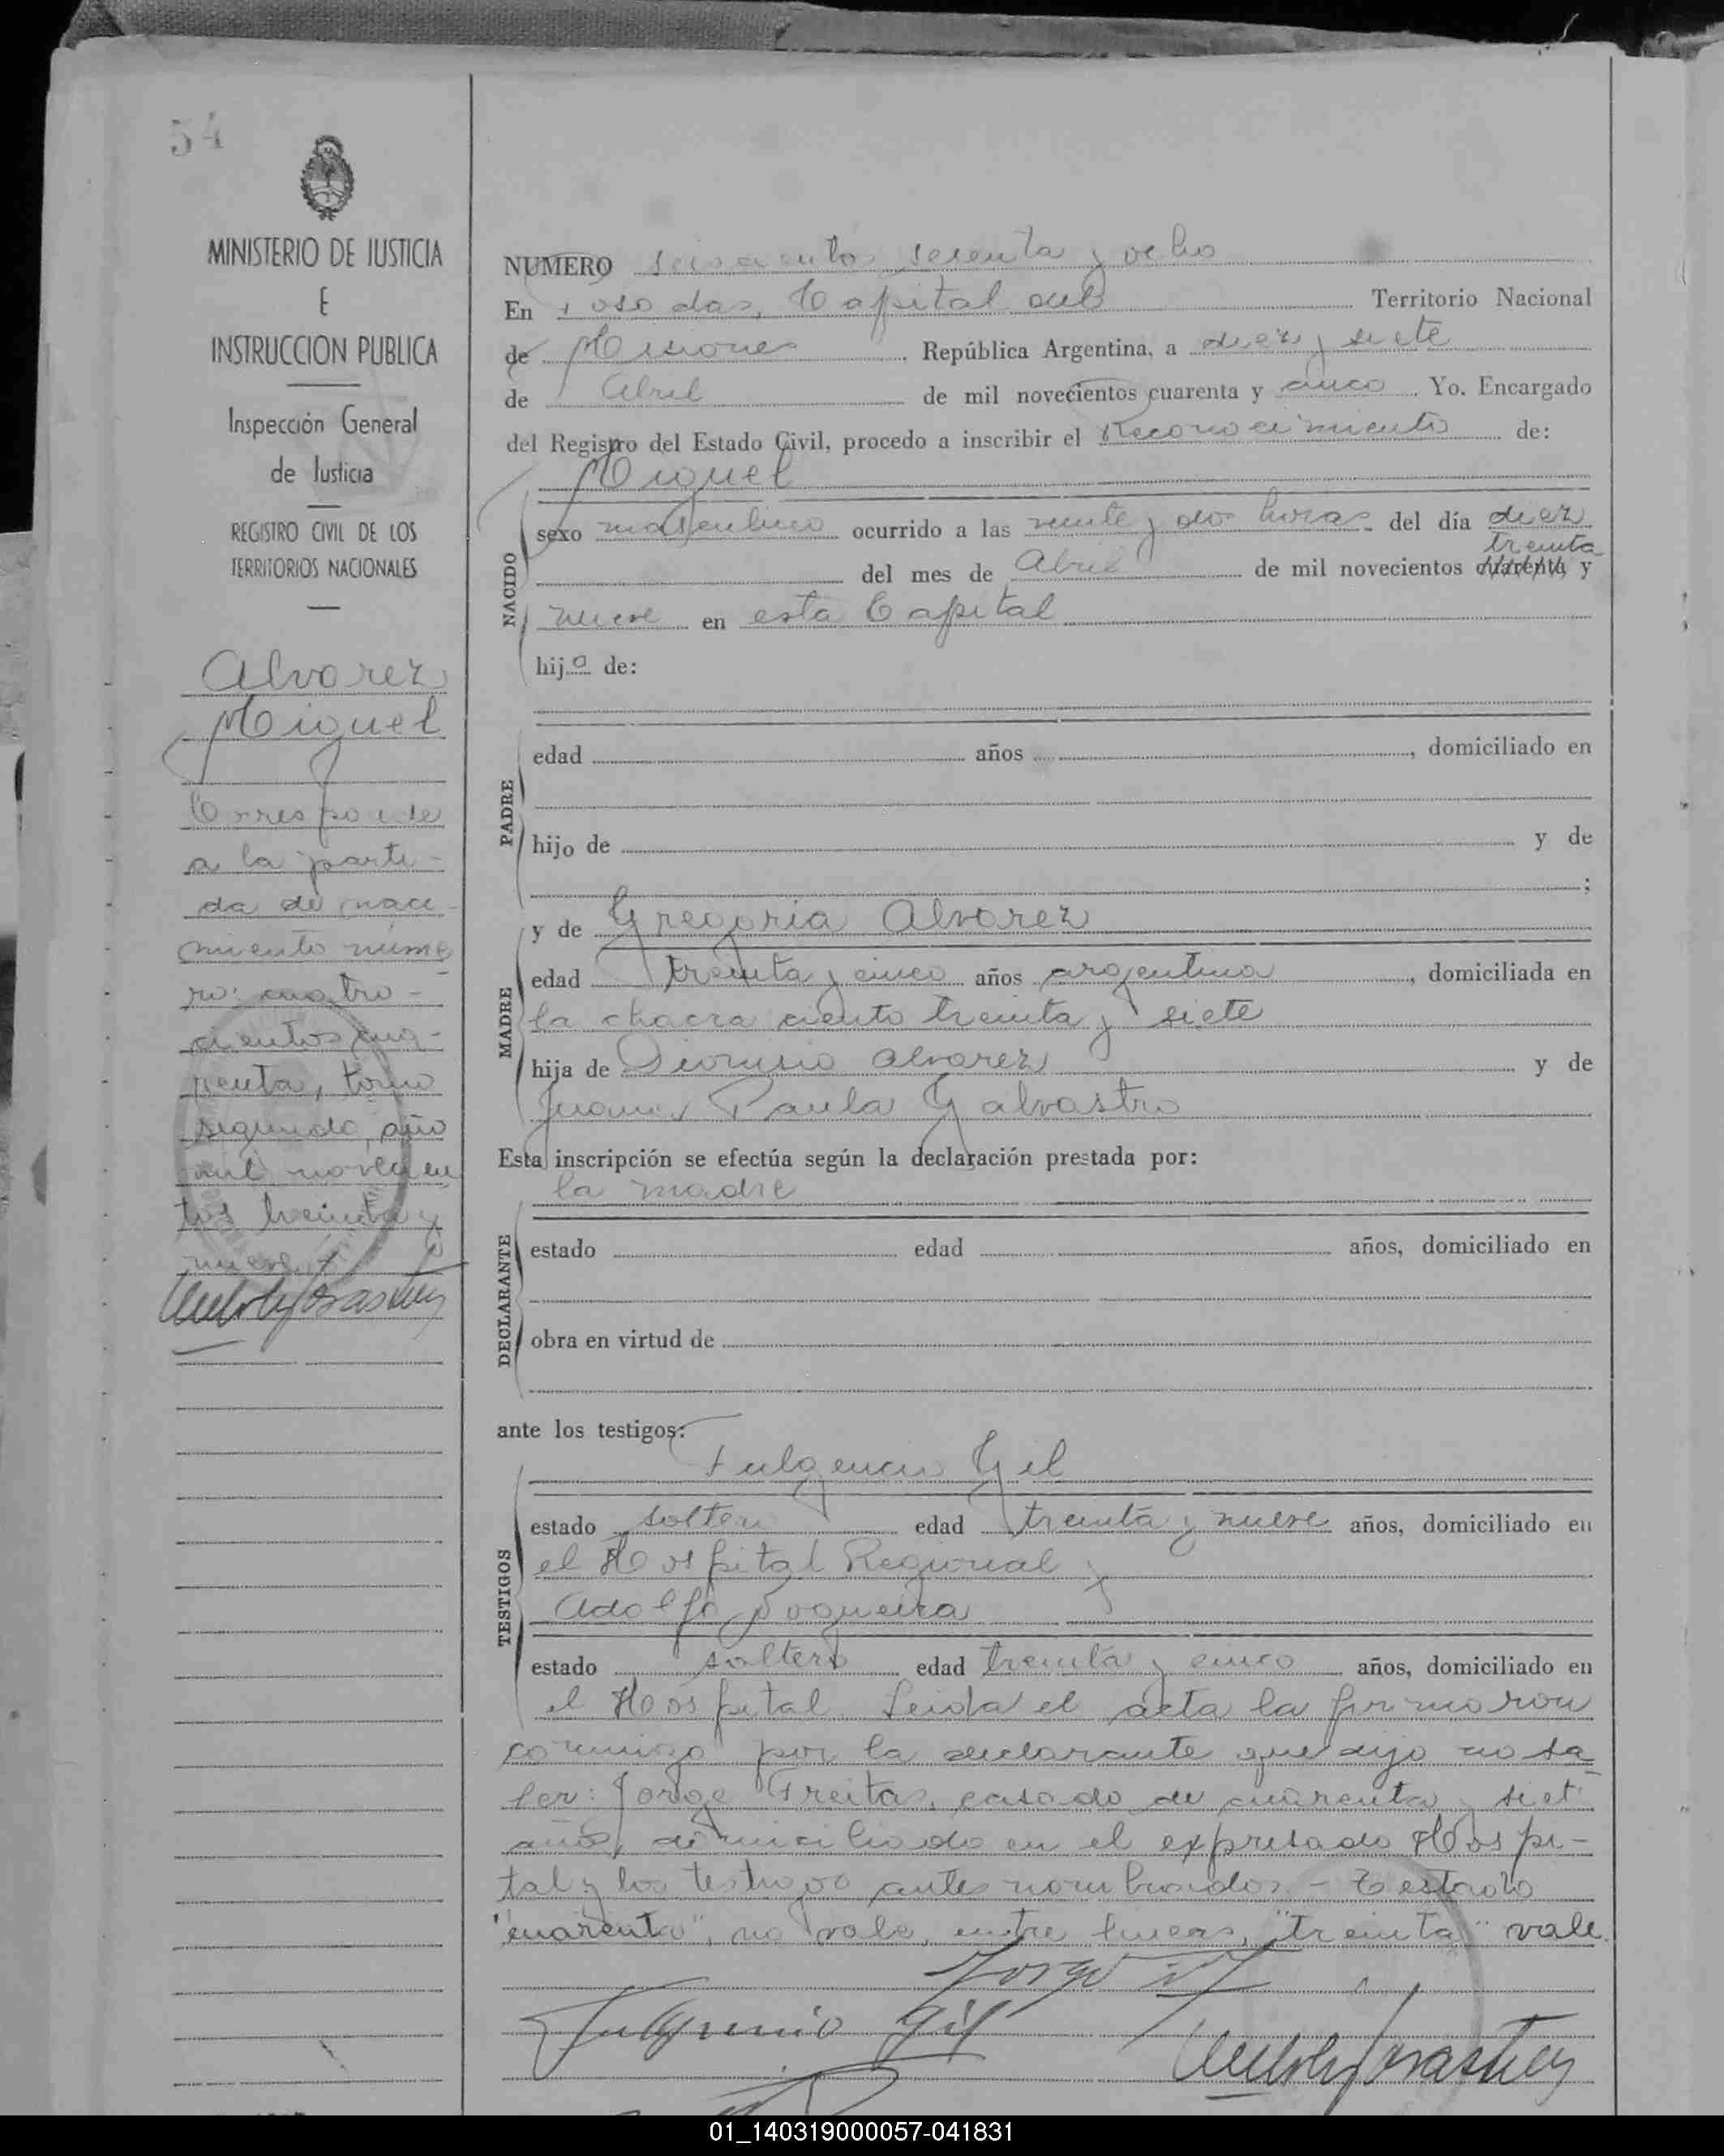 54
MINISTERIO DE JUSTICIA
E
INSTRUCCION PUBLICA
Inspección General
de Justicia
REGISTRO CIVIL DE LOS
TERRITORIOS NACIONALES
Alvarez
Miguel
Corresponde
a la parti-
da de naci-
miento núme
ro: cuatro-
cientos cua-
renta, tomo
segundo, año
mil novecien
tos treinta y
nueve.
NUMERO seiscientos sesenta y ocho
En Posadas, Capital del Territorio Nacional
de Misiones República Argentina, a diez y siete
de Abril de mil novecientos cuarenta y cinco Yo. Encargado
del Registro del Estado Civil, procedo a inscribir el Reconocimiento de:
Miguel
NACIDO
sexo masculino ocurrido a las veinte y dos horas del día diez
treinta
del mes de Abril de mil novecientos cuarenta y
nueve en esta Capital
hijo de:
PADRE
edad años , domiciliado en
hijo de y de
;
y de Gregoria Alvarez
MADRE
edad treinta y cinco años argentina , domiciliada en
la chacra ciento treinta y siete
hija de Dionisio Alvarez y de
Juana Paula Galvastro
Esta inscripción se efectúa según la declaración prestada por:
la madre
DECLARANTE
estado edad años, domiciliado en
obra en virtud de
ante los testigos:
Fulgencio Gil
TESTIGOS
estado soltero edad treinta y nueve años, domiciliado en
el Hospital Regional y
Adolfo Nogueira
estado soltero edad treinta y cinco años, domiciliado en
el Hospital. Leida el acta la firmaron
conmigo por la declarante que dijo no sa
ber: Jorge Freitas, casado de cuarenta y siete
años, domiciliado en el expresado Hospi-
tal y los testigos antes nombrados. - Testado
"cuarenta", no vale, entre lineas, "treinta" vale.
Fulgencio Gil
01_140319000057-041831